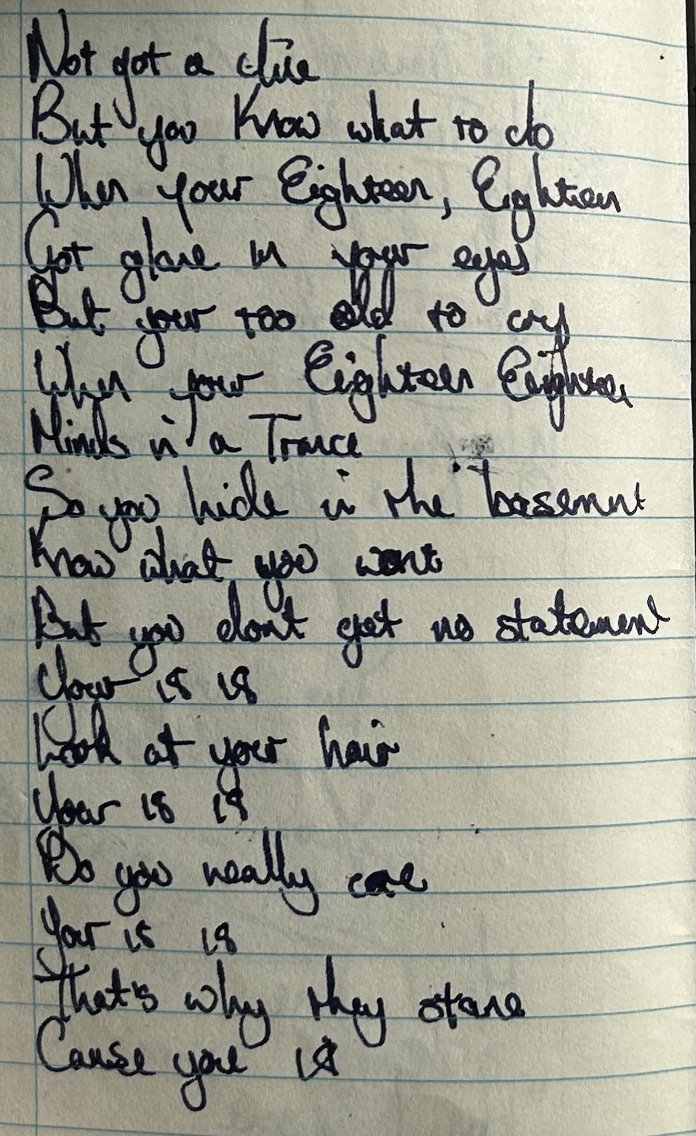 Not got a clue
But you Know what to do
When your Eighteen, Eighteen
Got glare in your eyes
But your too old to cry
When your Eighteen Eighteen
Minds in a Trance
So you hide in the basemnt
Know what you want
But you dont get no statement
Your 18 18
Look at your hair
Your 18 18
Do you really care
Your 18 18
That's why they stare
Cause you 18